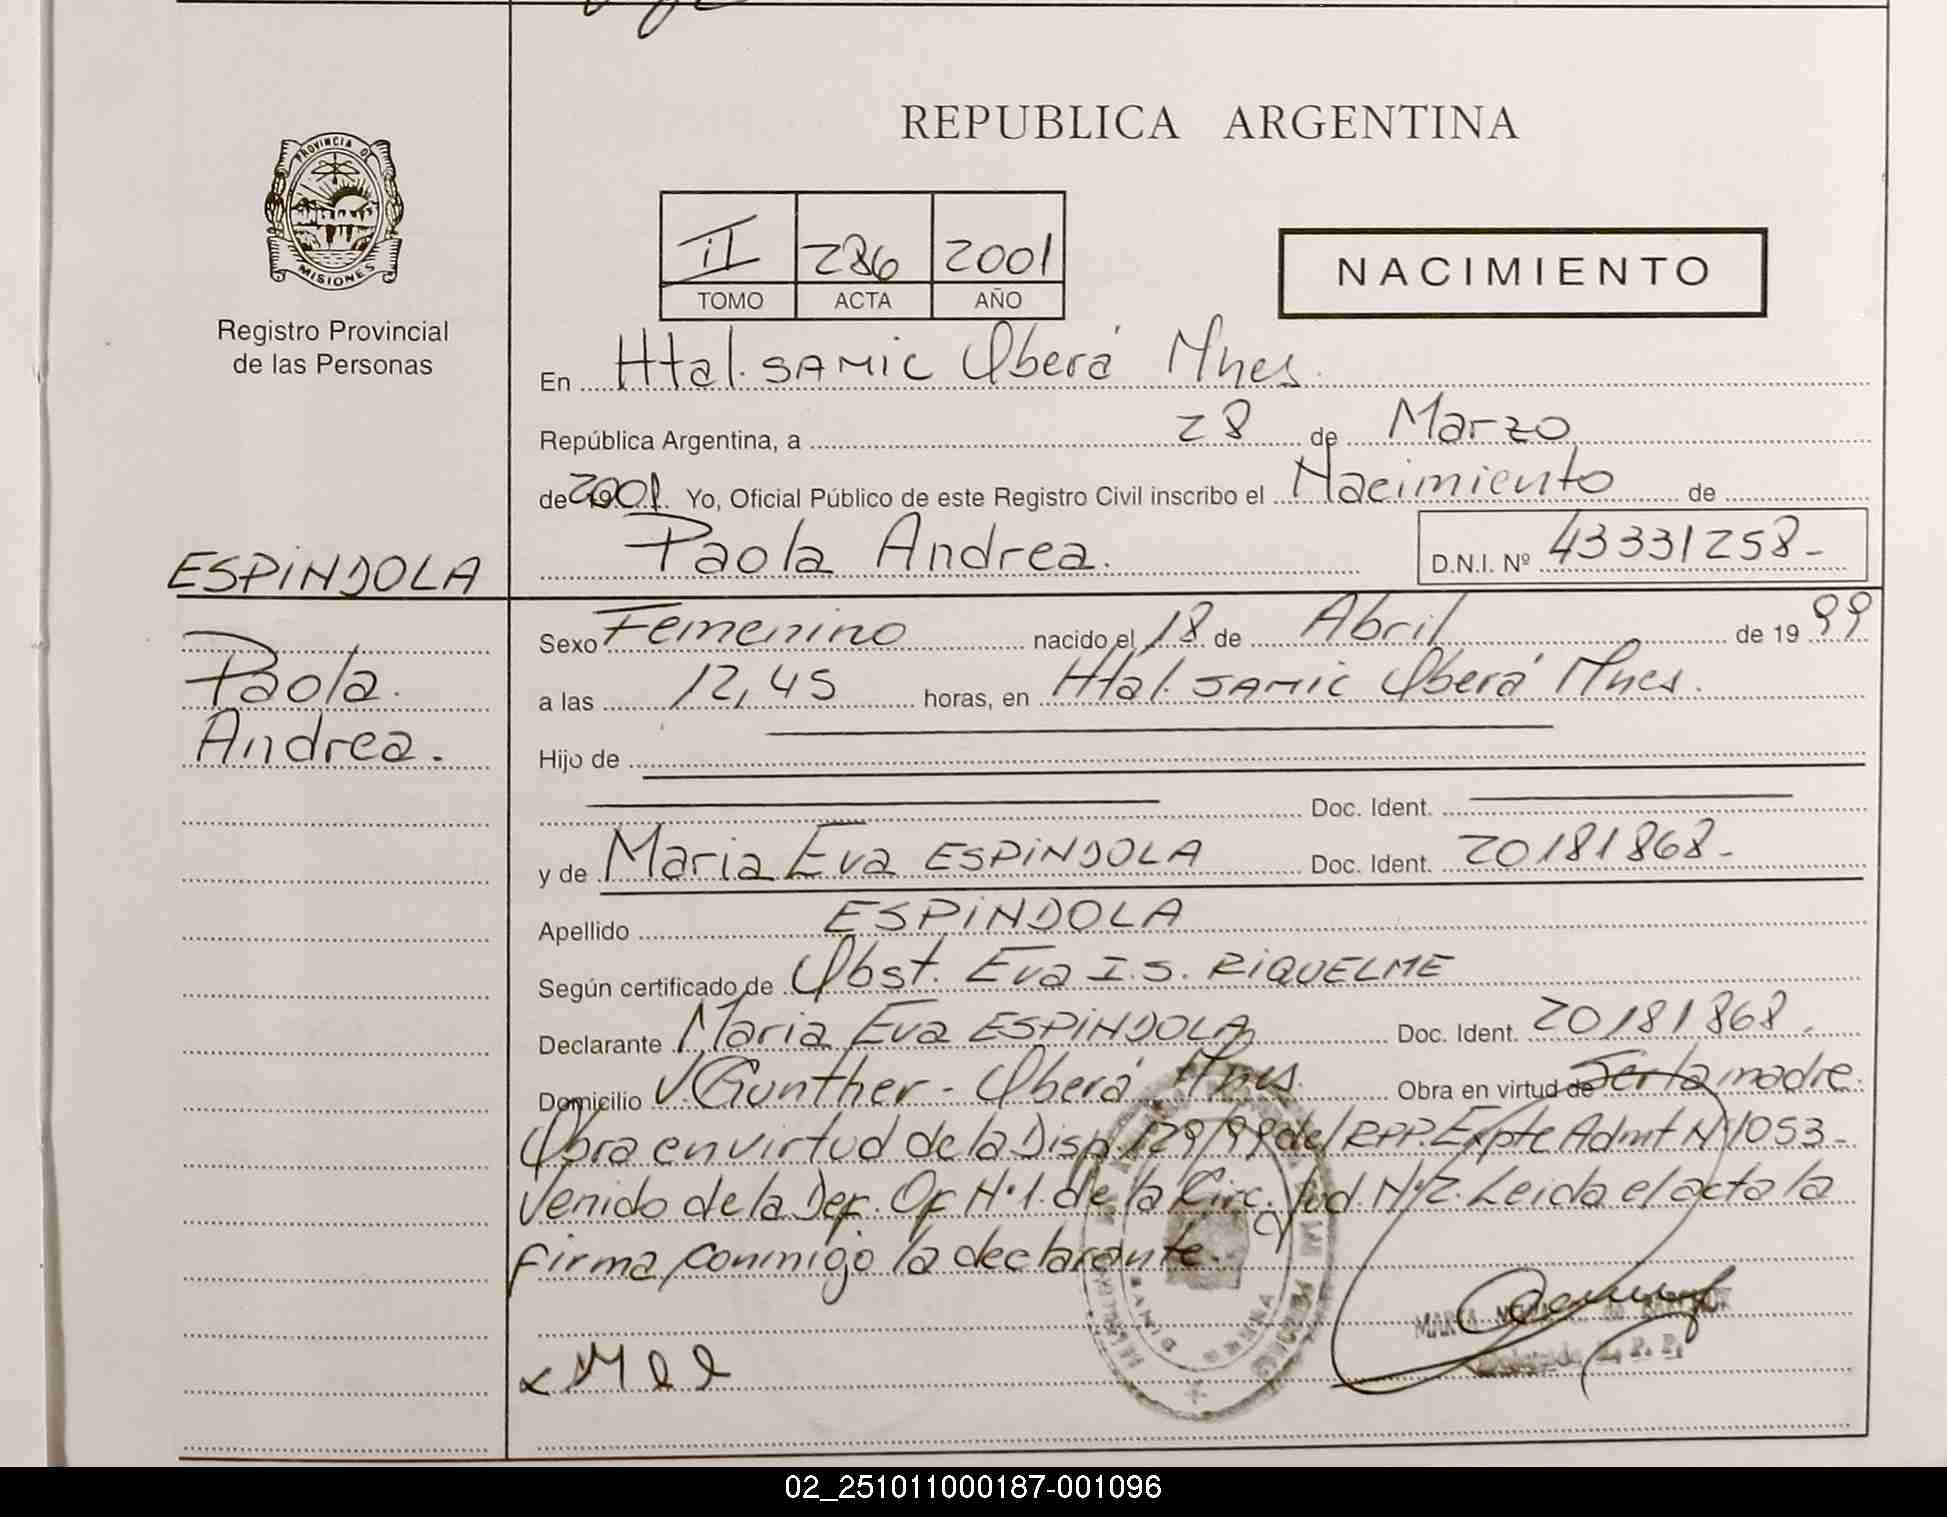 REPUBLICA ARGENTINA
PROVINCIA DE
MISIONES
Registro Provincial
de las Personas
II 286 2001
TOMO ACTA AÑO
NACIMIENTO
En Htal. SAMIC Oberá Mnes.
República Argentina, a 28 de Marzo
de 2001 Yo, Oficial Público de este Registro Civil inscribo el Nacimiento de
Paola Andrea. D.N.I. Nº 43331258-
ESPINDOLA
Paola
Andrea.
Sexo Femenino nacido el 18 de Abril de 19 99
a las 12,45 horas, en Htal. SAMIC Oberá Mnes.
Hijo de
Doc. Ident.
y de Maria Eva ESPINDOLA Doc. Ident. 20181868-
Apellido ESPINDOLA
Según certificado de Obst. Eva I.S. RIQUELME
Declarante Maria Eva ESPINDOLA Doc. Ident. 20181868.
Domicilio V. Gunther - Oberá Mnes. Obra en virtud de Ser la madre.
Obra en virtud de la Disp. 129/99 del RPP. Expte Admt Nº 1053-
Venido de la Def. Of Nº1. de la Circ. Jud. Nº2. Leida el acta la
firma conmigo la declarante.
MARTA
R. P. P.
02_251011000187-001096